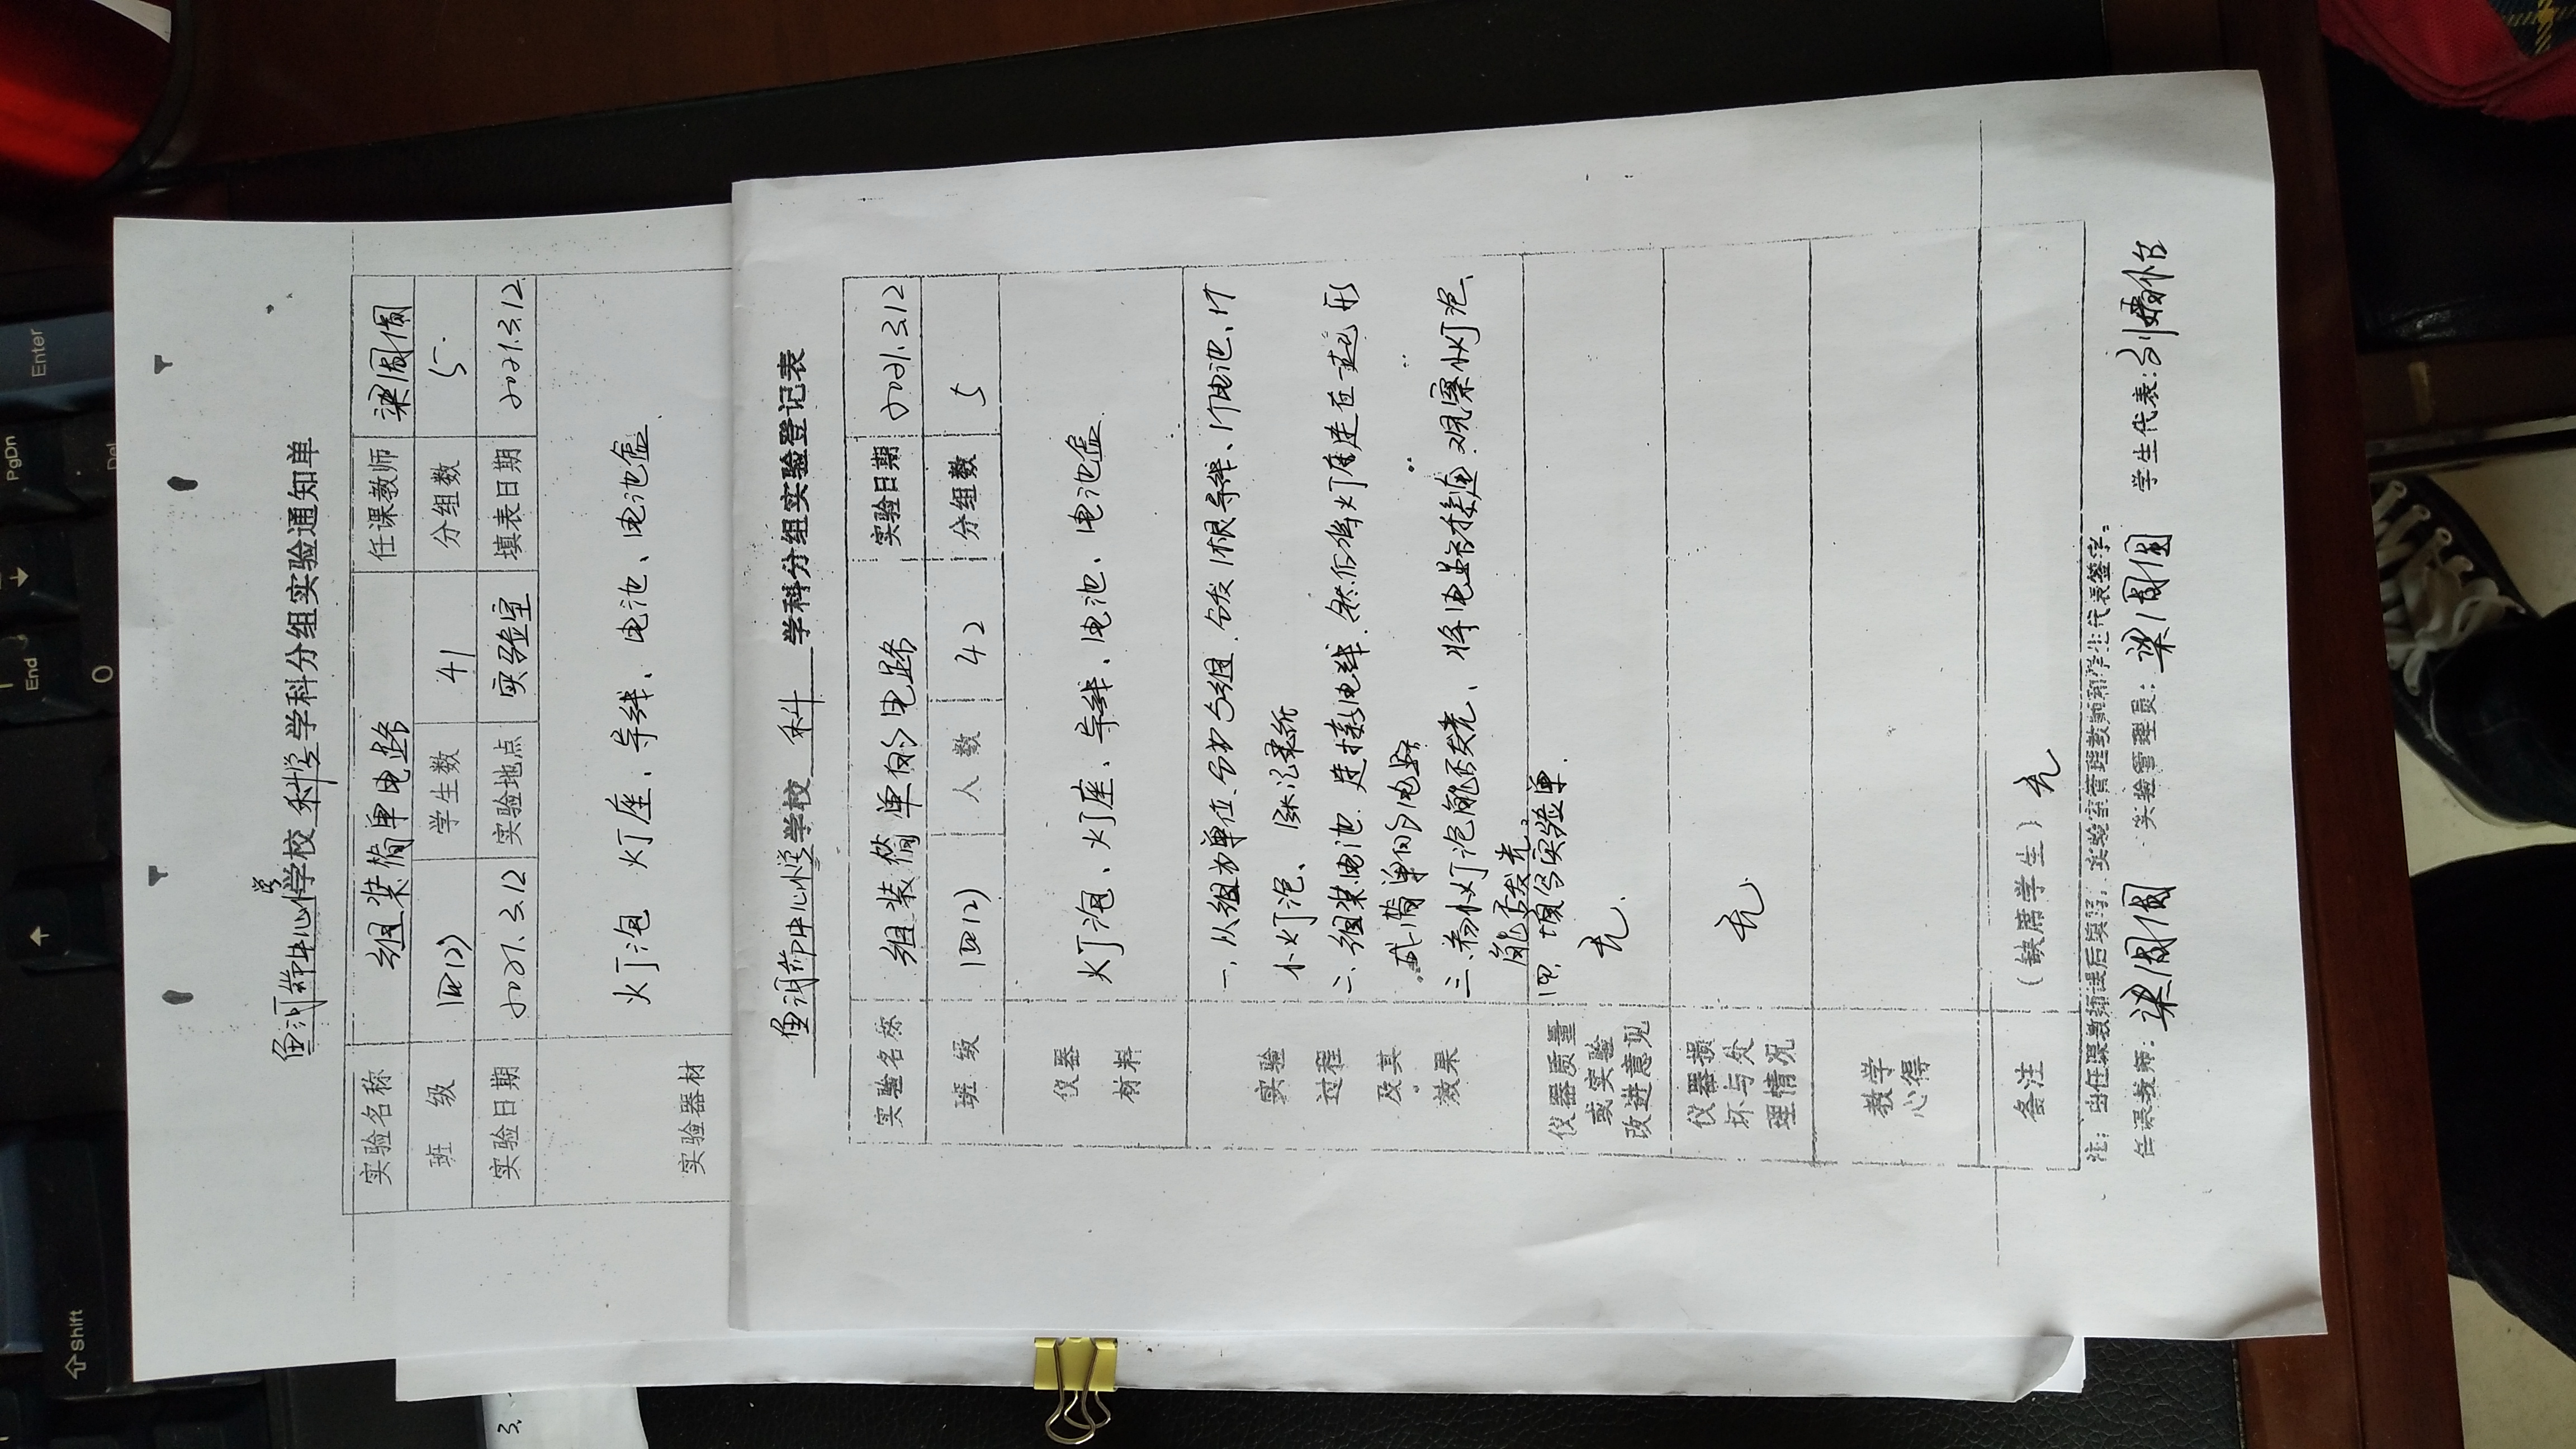 鱼洞莭中心小学校 科学 学科分组实验通知单
实验名称 组装简单电路 任课教师 梁周围
班 级 四(2) 学生数 41 分组数 5
实验日期 2021.3.12 实验地点 实验室 填表日期 2021.3.12
实验器材 灯泡、灯座、导线、电池、电池盒
科 学科分组实验登记表
实验名称 组装简单的电路 实验日期 2021.3.12
班 级 四(2) 人 数 42 分组数 5
仪器材料 灯泡、灯座、导线、电池、电池盒
实验
过程
及其
效果
一、从组为单位、分为5组、分发1根导线、1个电池、1个
小灯泡、
二、组装电池、连接电线、然后将灯座连在一起形
成简单的电路
三、看小灯泡能否发光、将电路接通、观察小灯泡、
能否发光。
四、填写实验单
仪器质量
或实验
改进意见
无.
仪器损
坏与处
理情况
无
教学
心得
备注 (缺席学生) 无
注:由任课教师课后填写,实验室管理教师和学生代表签字。
任课教师: 梁周围 实验管理员: 梁周围 学生代表:
Enter
PgDn
Del
End
0
Shift
3.